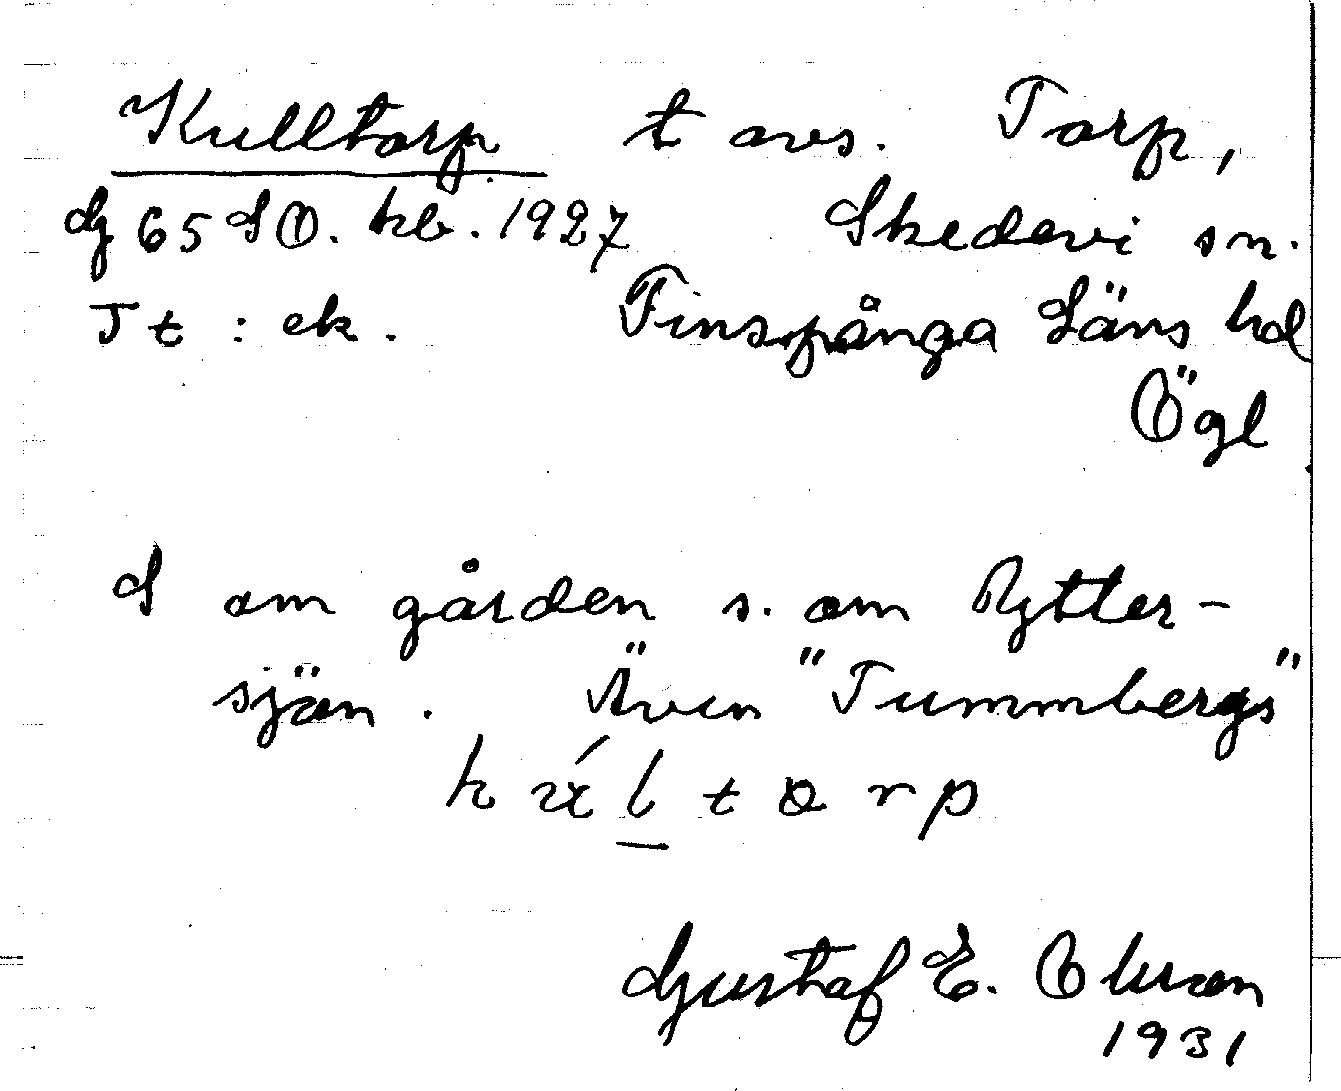 Kulltorp t avs. Torp,
Gg 65 SO. kb. 1927 Skedevi sn.
Jt : ek. Finspånga Läns hd
Ögl
S om gården s. om Rytter-
sjön. Även "Tummbergs"
kúltorp
Gustaf E. Olsson
1931